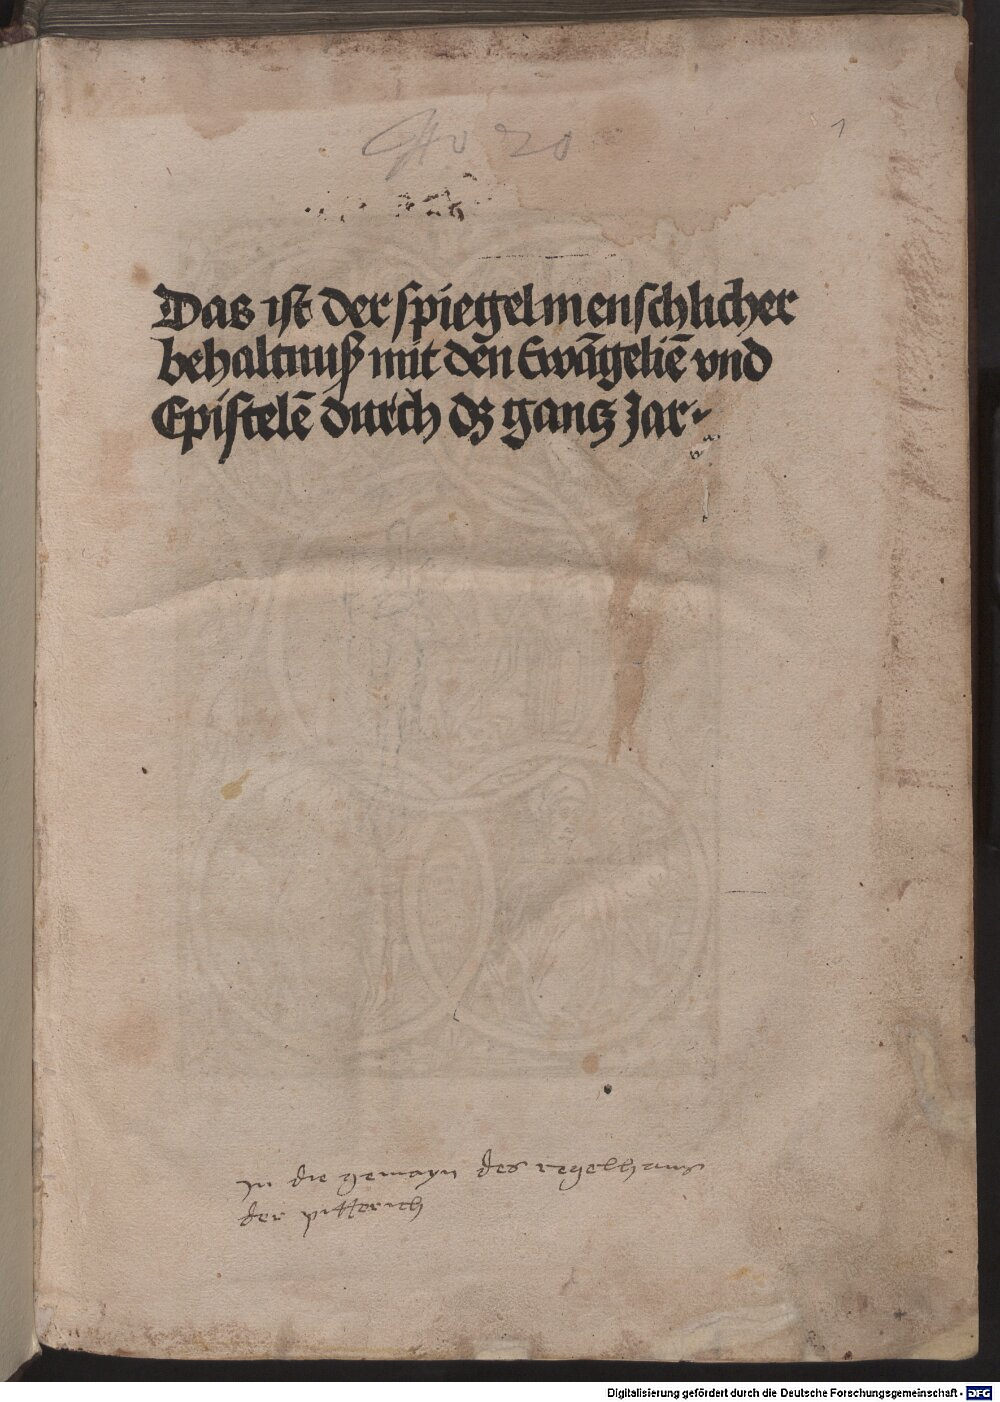 No 20
1
Das ist der spiegel menschlicher
behaltnuß mit den Ewãgeliẽ vnd
Epistelẽ durch dz gantz Jar
In die gemayn des regelhaus
der pitterich
Digitalisierung gefördert durch die Deutsche Forschungsgemeinschaft - DFG